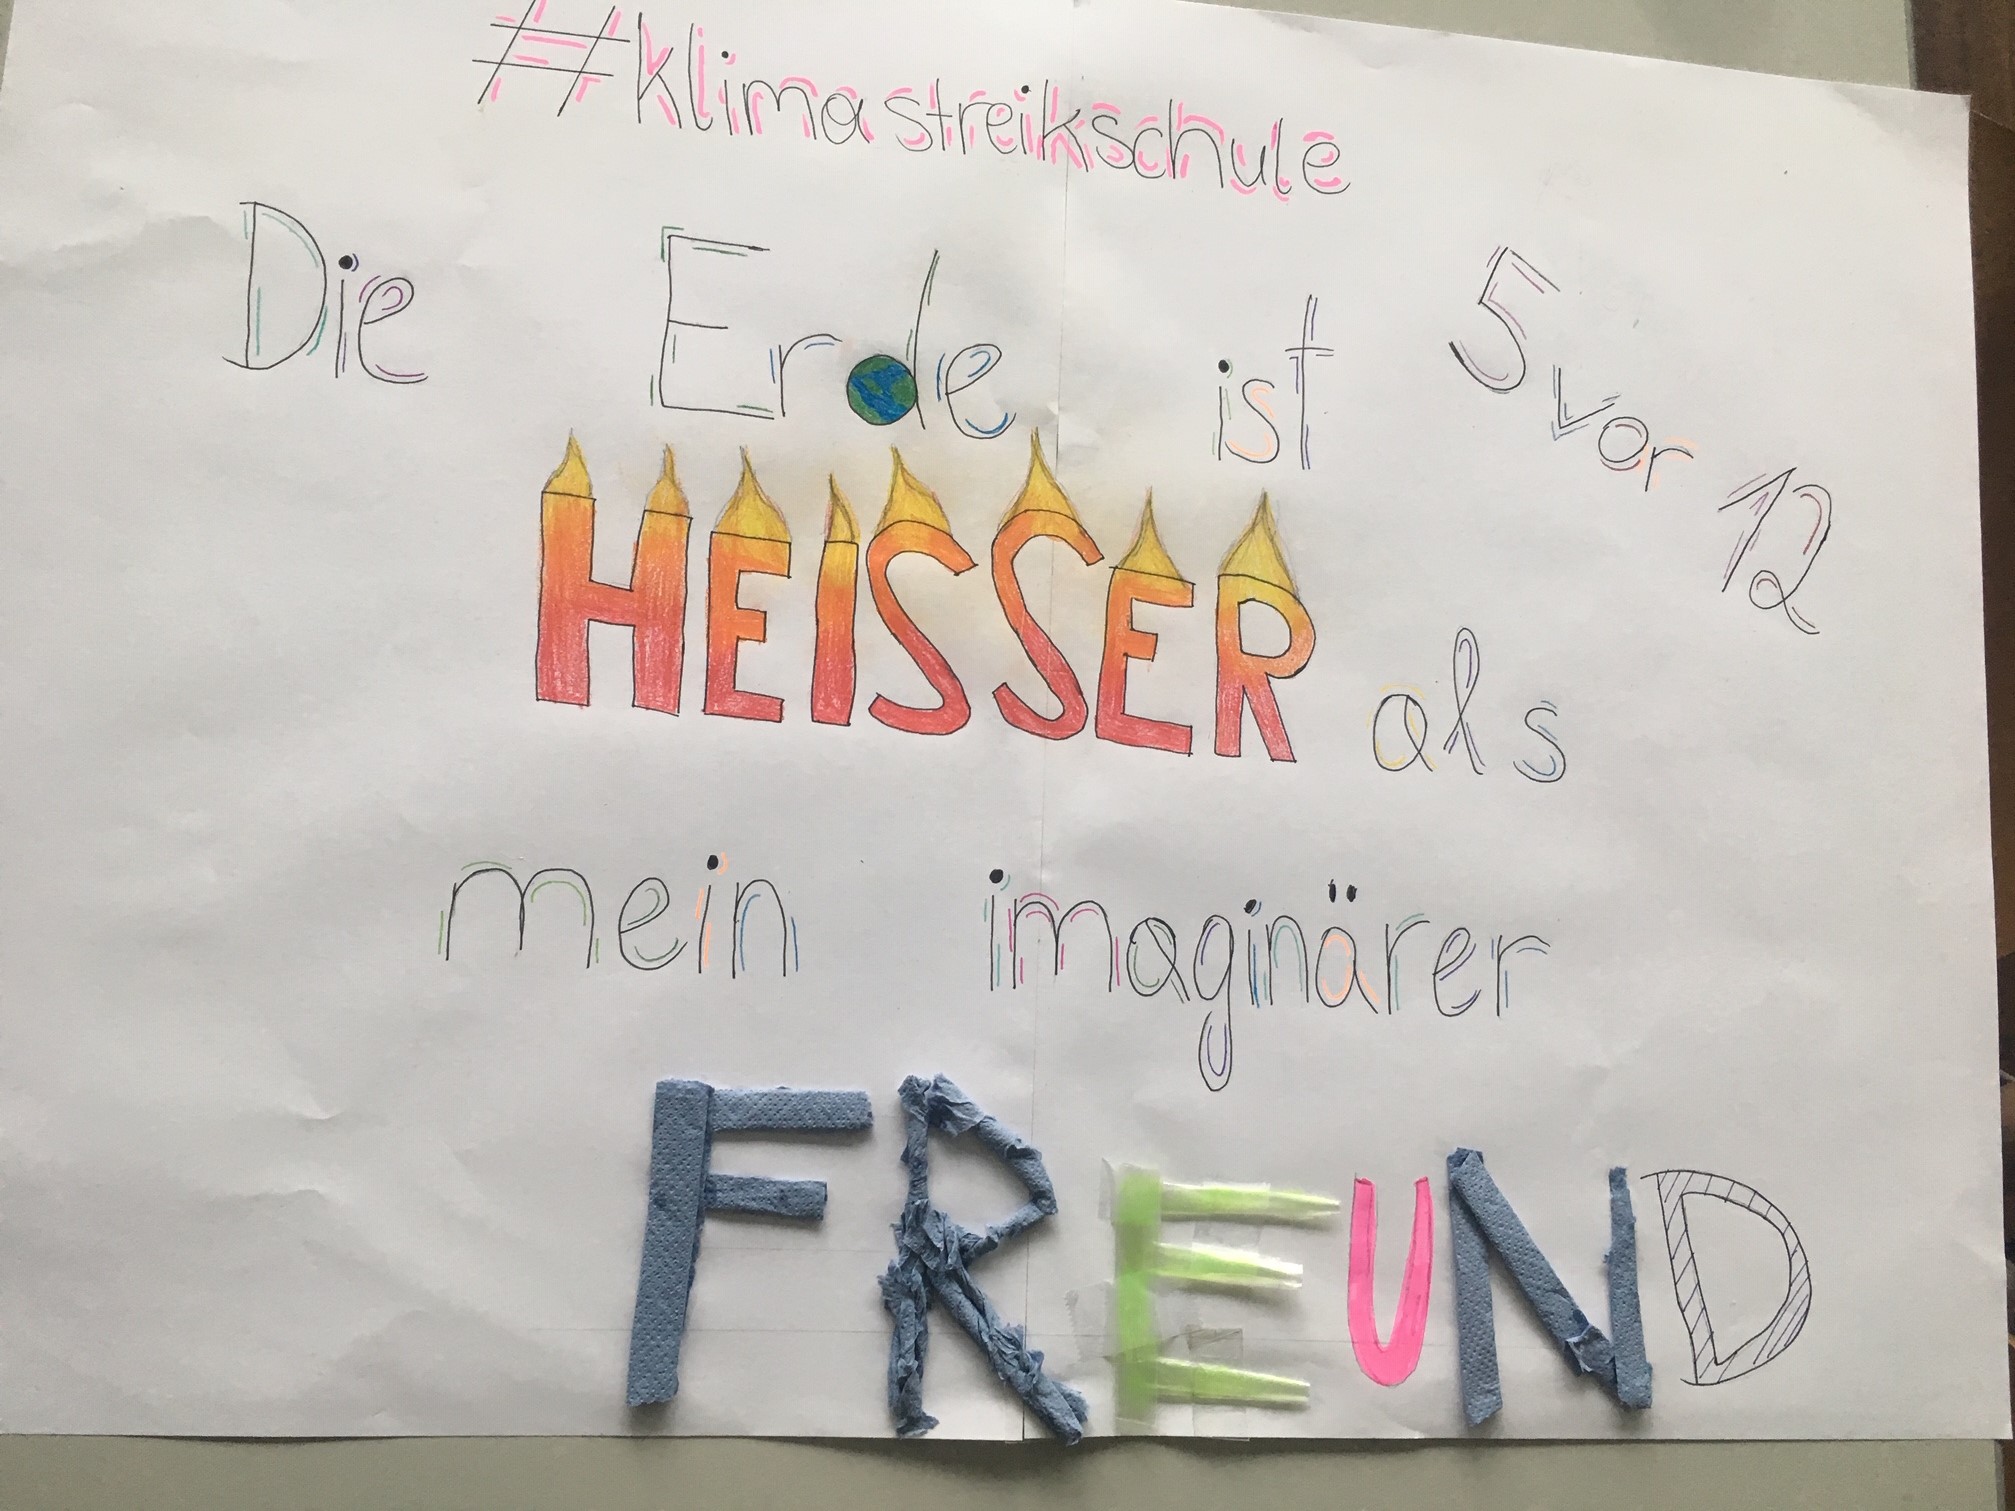 #klimastreikschule
Die Erde ist 5 vor 12
HEISSER als
mein imaginärer
FREUND